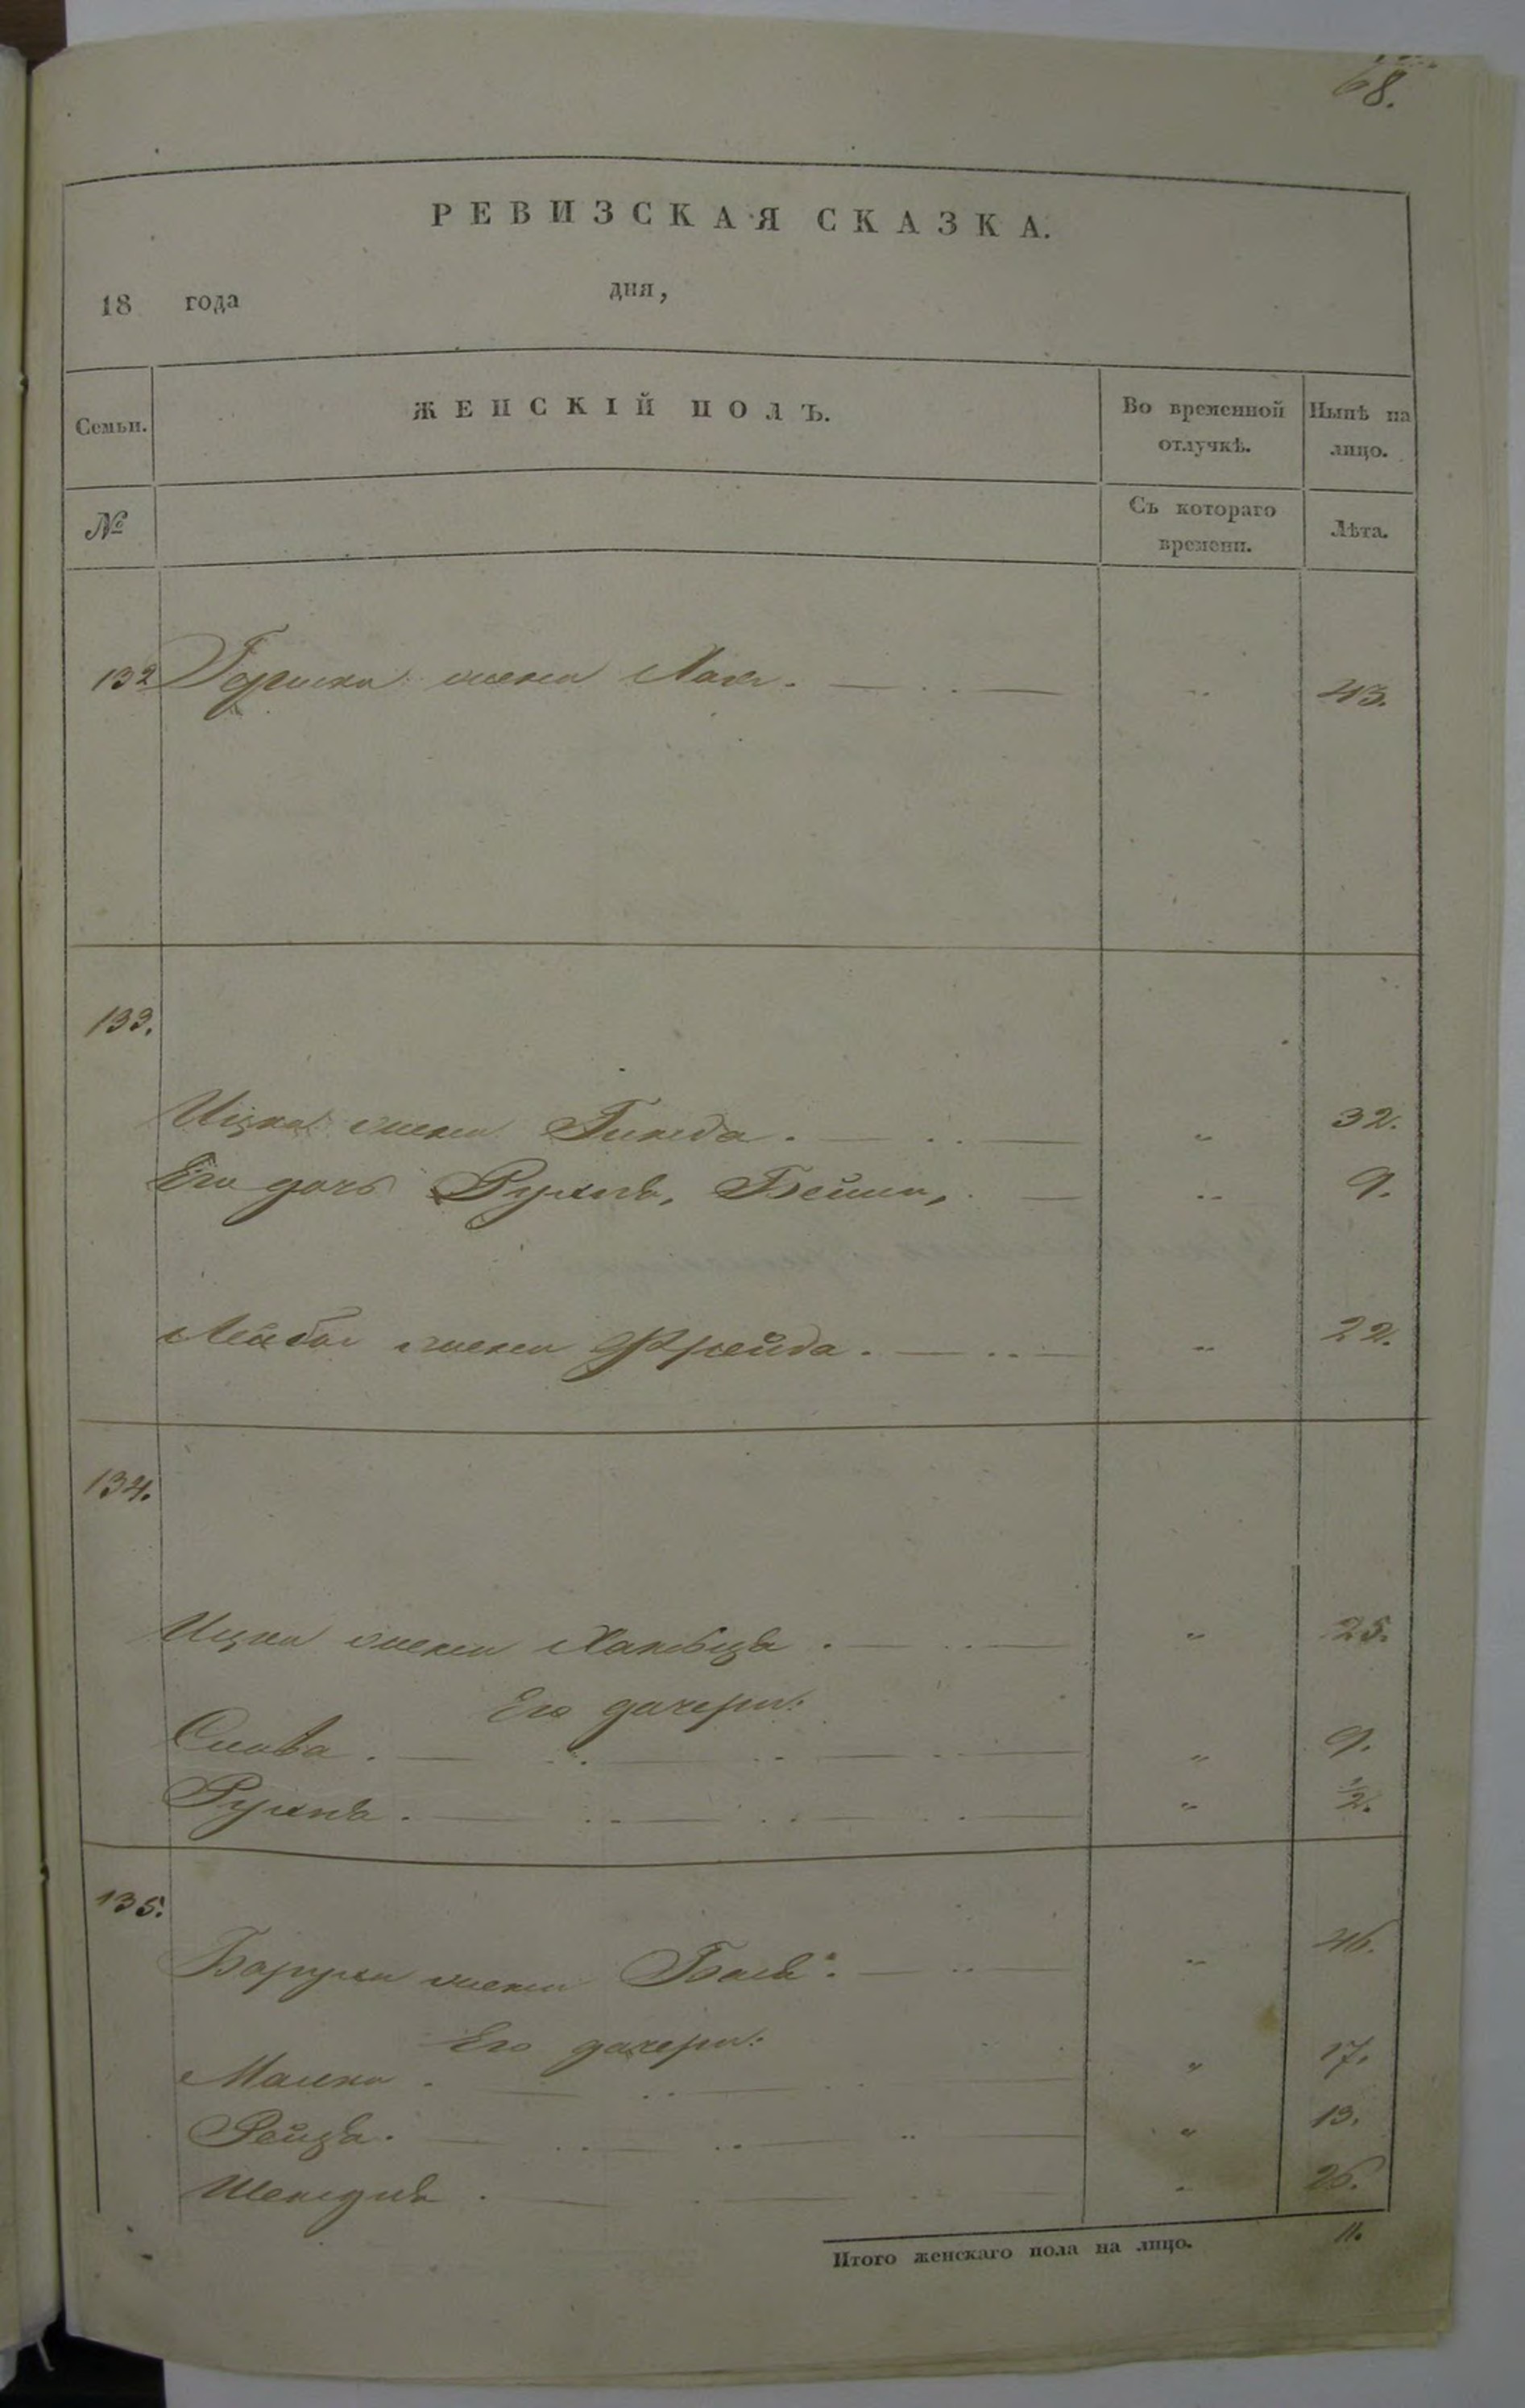 68.
РЕВИЗСКАЯ СКАЗКА.
18 года дня,
Семьи. ЖЕНСКІЙ ПОЛЪ. Во временной отлучкѣ. Нынѣ на лицо.
№ Съ котораго времени. Лѣта.
132 жена 43.
133.
Ицка жена Гинда. " 32.
Его дочь Рухля, Бейла, " 9.
Лейбы жена Фрейда. " 22.
134.
Ицки жена " 25.
Его дочери:
Слова. " 9.
Рухля. " ½.
135.
Баруха жена " 46.
Его дочери:
Малка. " 17.
Рейзя. " 13.
" 26.
Итого женскаго пола на лицо. 11.